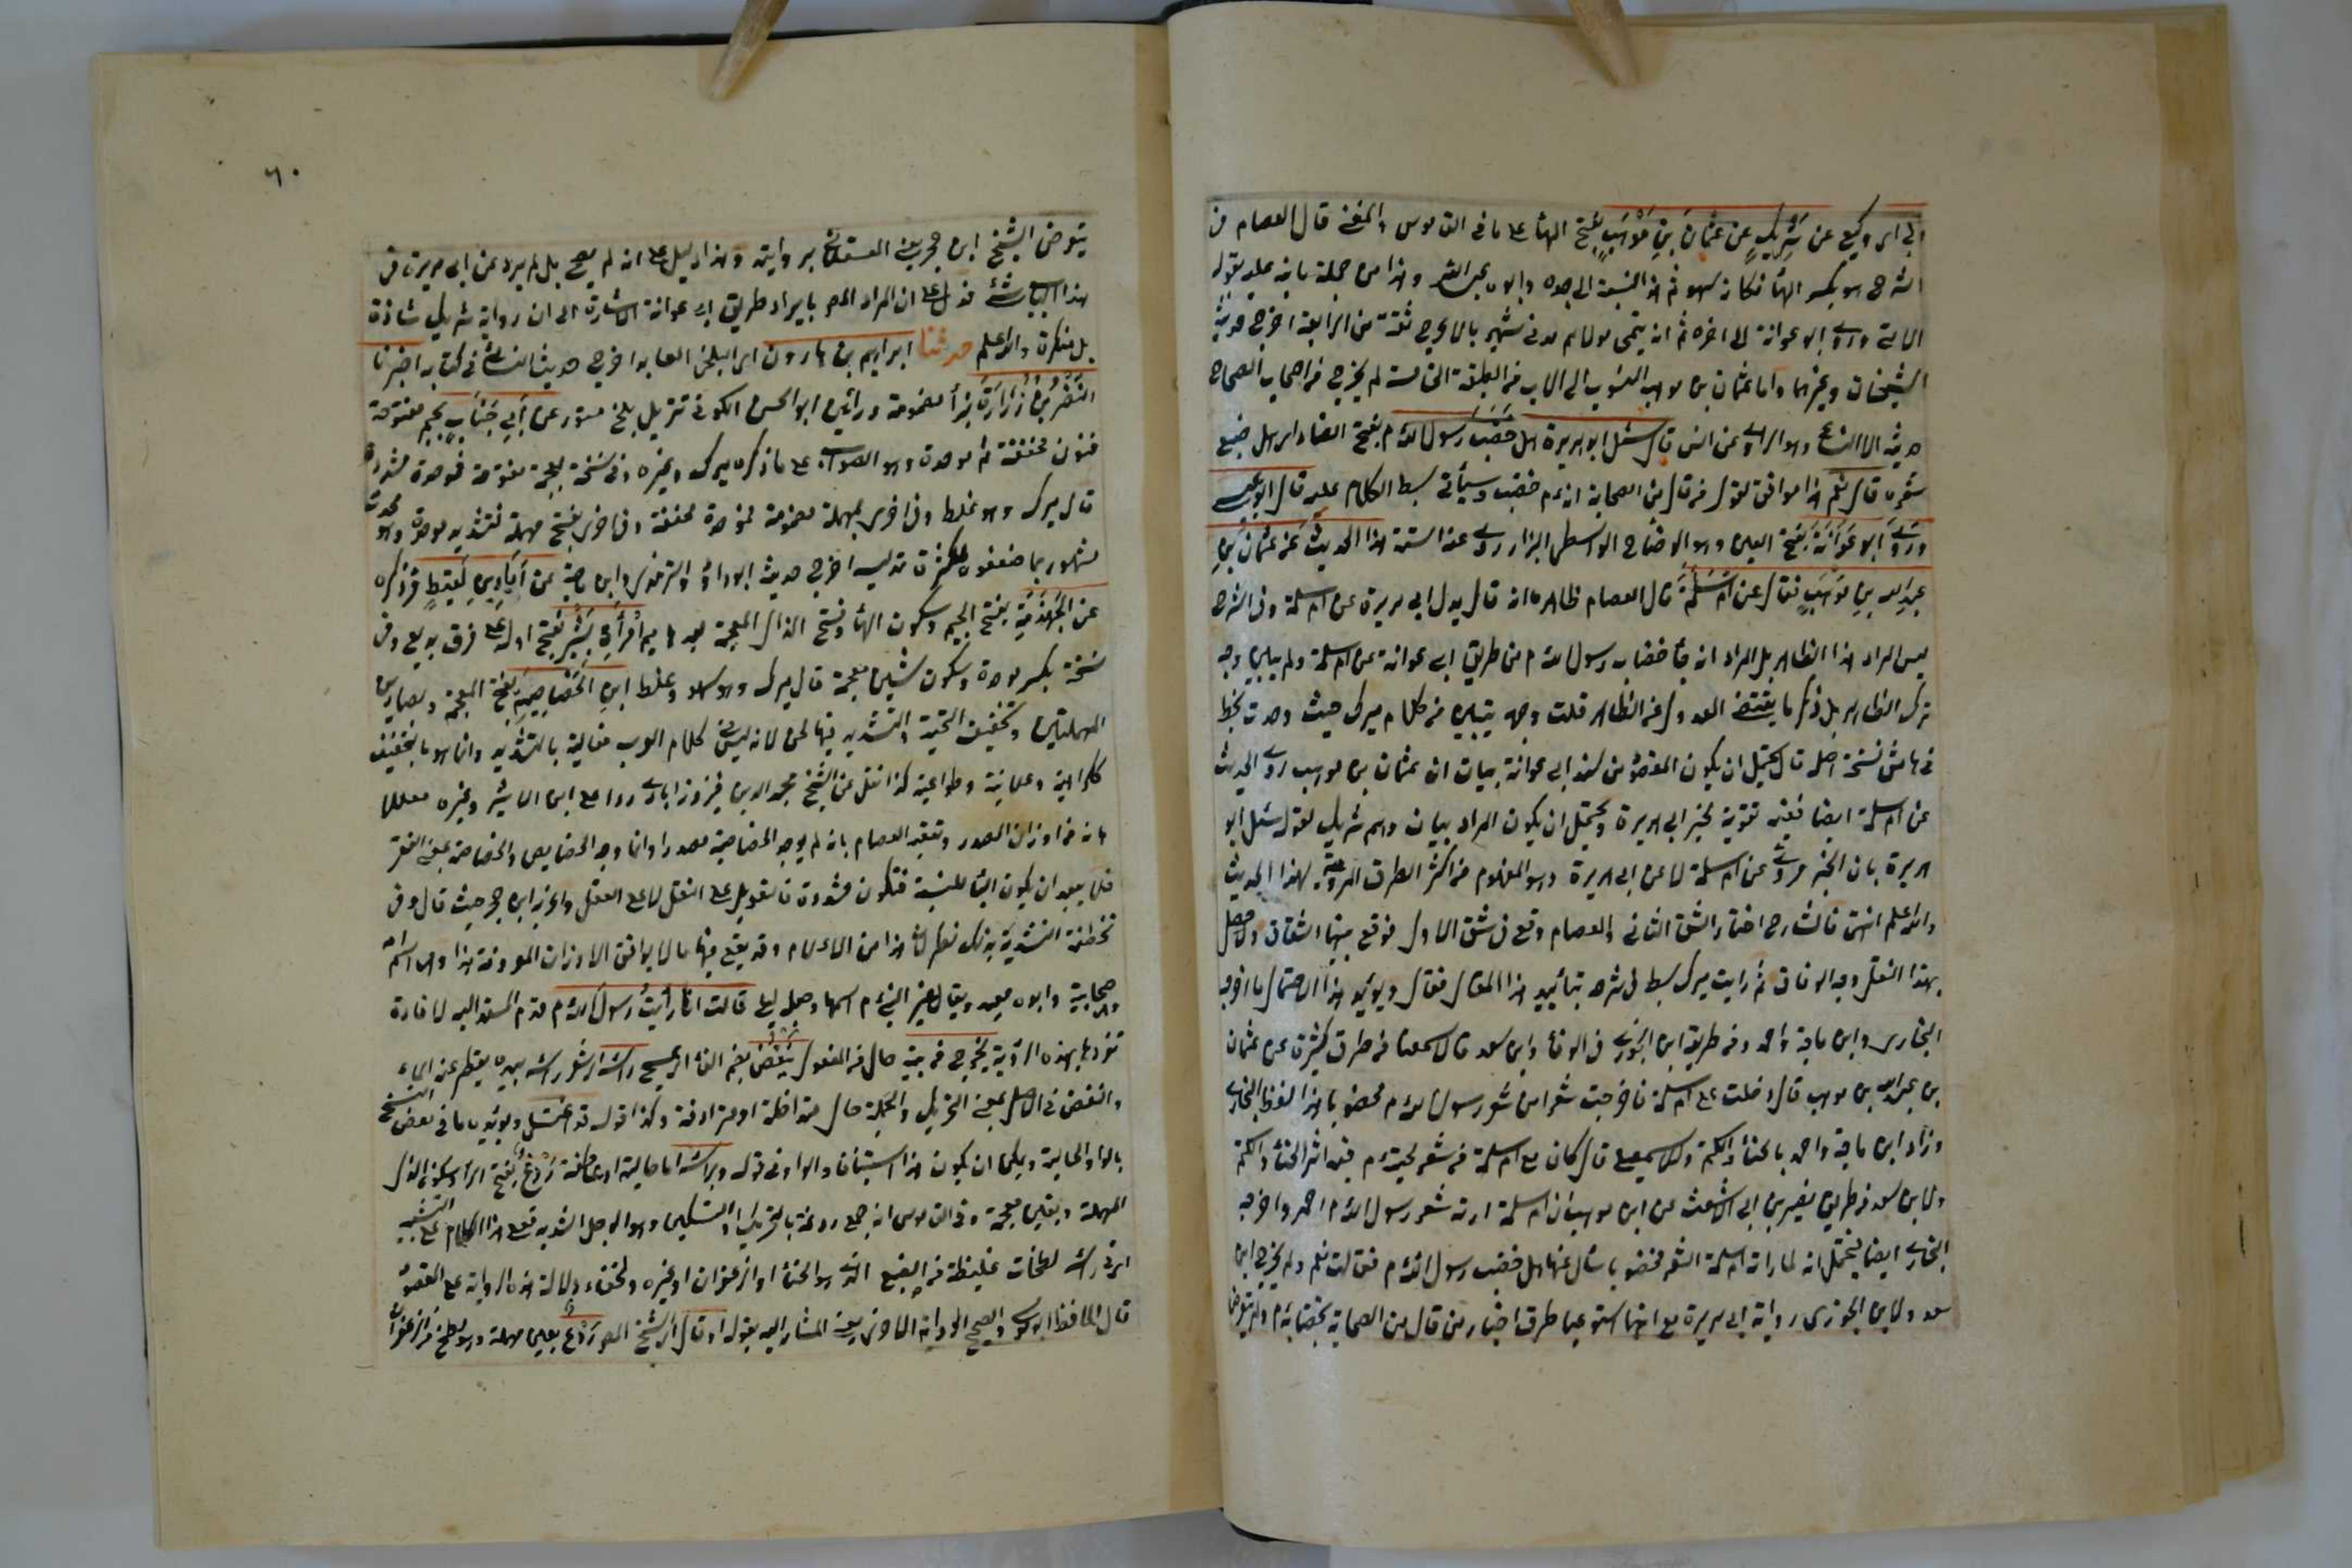 ابي اي وكيع عن شريك عن عثمان بن موهب بفتح الهاء على ما في القاموس والمغني قال العصام في
الشرح هو بكسر الهاء فكانه سهو ثم هذا النسبة الى جده وابوه عبد الله وهذا من جملة ما نبه عليه بقوله
الاتي وروى ابو عوانة الى اخره ثم انه يتمى مولاهم مدني شهير بالاعرج ثقة من الرابعة اخرج حديثه
الشيخان وغيرهما واما عثمان بن موهب المنسوب الى الاب من الطبقة الخامسة لم يخرج من اصحاب الصحاح
حديثه الا النسائي وهو الراوي عن انس قال سئل ابو هريرة هل خضب رسول الله م بفتح الضاد اي هل صبغ
شعره قال نعم هذا موافق لقول من قال من الصحابة انه م خضب وسيأتي بسط الكلام عليه قال ابو عيسى
وروى ابو عوانة بفتح العين وهو الوضاح الواسطي البزاز روى عنه الستة هذا الحديث عن عثمان بن
عبد الله بن موهب فقال عن ام سلمة قال العصام ظاهره انه قال بدل ابي هريرة عن ام سلمة وفي الشرح
ليس المراد هذا الظاهر بل المراد انه جاء خضاب رسول الله م من طريق ابي عوانة عن ام سلمة ولم يبين وجه
ترك الظاهر بل ذكر ما يقتضي العدول عن الظاهر قلت وجهه يتبين من كلام ميرك حيث وجدت بخط
في هامش نسخة اصله قال يحتمل ان يكون المقصود من سند ابي عوانة بيان ان عثمان بن موهب روى الحديث
عن ام سلمة ايضا ففيه تقوية لخبر ابي هريرة ويحتمل ان يكون المراد بيان وهم شريك لقوله سئل ابو
هريرة بان الخبر مروي عن ام سلمة لا عن ابي هريرة وهو المفهوم من اكثر الطرق المروية لهذا الحديث
والله اعلم انتهى فالشارح اختار الشق الثاني والعصام وقع في شق الاول فوقع بينهما الشقاق وحصل
بهذا النقل وجه الوفاق ثم رايت ميرك بسط في شرحه بتأييد هذا المقال فقال ويؤيد هذا الاحتمال ما اخرجه
البخاري وابن ماجة واحمد ومن طريقه ابن الجوزي في الوفاء وابن سعد كلهم من طرق كثيرة عن عثمان
بن عبد الله بن موهب قال دخلت على ام سلمة فاخرجت شعرا من شعر رسول الله م مخضوبا هذا لفظ البخاري
وزاد ابن ماجة واحمد بالحناء والكتم وللاسمعيلي قال كان مع ام سلمة من شعر لحيته م فيه اثر الحناء والكتم
ولابن سعد من طريق نصير بن ابي الاشعث عن ابن موهب ان ام سلمة ارته شعر رسول الله م احمر واخرجه
البخاري ايضا فيحتمل انه لما ارته ام سلمة الشعر مخضوبا سأل عنها هل خضب رسول الله م فقالت نعم ولم يخرج ابن
سعد ولا ابن الجوزي رواية ابي هريرة مع انهما استوعبا طرق اخبار من قال من الصحابة بخضابه م ولم يتعرضا
يتعرض الشيخ ابن حجر يعني العسقلاني بروايته وهذا دليل على انه لم يصح بل لم يرد عن ابي هريرة في
هذا الباب شئ فدل على ان المراد المص بايراد طريق ابي عوانة الاشارة الى ان رواية شريك شاذة
بل منكرة والله اعلم حدثنا ابراهيم بن هارون اي البلخي العابد اخرج حديثه النسائي في كتابه اخبرنا
النضر بن زرارة بزاء مضمومة ورائين ابو الحسن الكوفي نزيل بلخ مستور عن ابي جناب بجيم مفتوحة
فنون مخففة ثم موحدة وهو الصواب على ما ذكره ميرك وغيره وفي نسخة بمعجمة مفتوحة فموحدة مشددة
قال ميرك وهو غلط وفي اخرى بمهملة مضمومة فموحدة مخففة وفي اخرى بفتح مهملة فتشديد موحدة وهو محدث
مشهور ربما ضعفوه لكثرة تدليسه اخرج حديثه ابو داؤد والترمذي وابن ماجة عن اياد بن لقيط مر ذكره
عن الجهذمة بفتح الجيم وسكون الهاء وفتح الذال المعجمة بعدها ميم امرأة بشير بفتح اوله على فرق بديع وفي
نسخة بكسر موحدة وسكون شين معجمة قال ميرك وهو سهو وغلط ابن الخصاصية بفتح المعجمة وبصادين
المهملتين وتخفيف التحتية والتشديد فيها لحن لانه ليس في كلام العرب فعالية بالتشديد وانما هو بالتخفيف
كالكراهية وعلانية وطواعية كذا نقل عن الشيخ مجد الدين فيروزابادي ردا على ابن الاثير وغيره معللا
بانه من اوزان المصدر وتعقبه العصام بانه لم يوجد الخصاصية مصدرا وانما وجد الخصايص والخصاصة بمعنى الفقر
فلا يبعد ان يكون الياء للنسبة فتكون مشددة فالتعويل على النقل لا على العقل واغرب ابن حجر حيث قال وفي
تخطئة التشديد بذلك نظر لان هذا من الاعلام وقد يقع فيها ما لا يوافق الاوزان المعروفة هذا وهي اسم امه
وهي صحابية وابوه معبد ويقال غير النبي م اسمها وجعله ليلى قالت انا رأيت رسول الله م قدم المسند اليه لافادة
تفردها بهذه الرؤية يخرج من بيته حال من المفعول ينفض بضم الفاء اي يمسح راسه اي شعر راسه بيده يقطر عنه الماء
والنفض في الاصل بمعنى التحريك والجملة حال متداخلة او مترادفة وكذا قوله قد اغتسل ويؤيده ما في بعض النسخ
بالواو الحالية ويمكن ان يكون هذا استينافا والواو في قوله وبراسه اما حالية او عاطفة ردغ بفتح الراء وسكون الدال
المهملة وبغين معجمة وفي القاموس انه جمع ردغة بالتحريك او التسكين وهو الوحل الشديد فعلى هذا الكلام على التشبيه
اي في راسه لطخات غليظة من الصبغ الذي هو الحناء او الزعفران او غيره ولخفاء دلالة هذه الرواية على المقصود
قال الحافظ ابو موسى والصحيح الرواية الاخرى يعني المشار اليه بقوله او قال اي الشيخ المص ردع بعين مهملة وهو لطخ من زعفران
٦٠